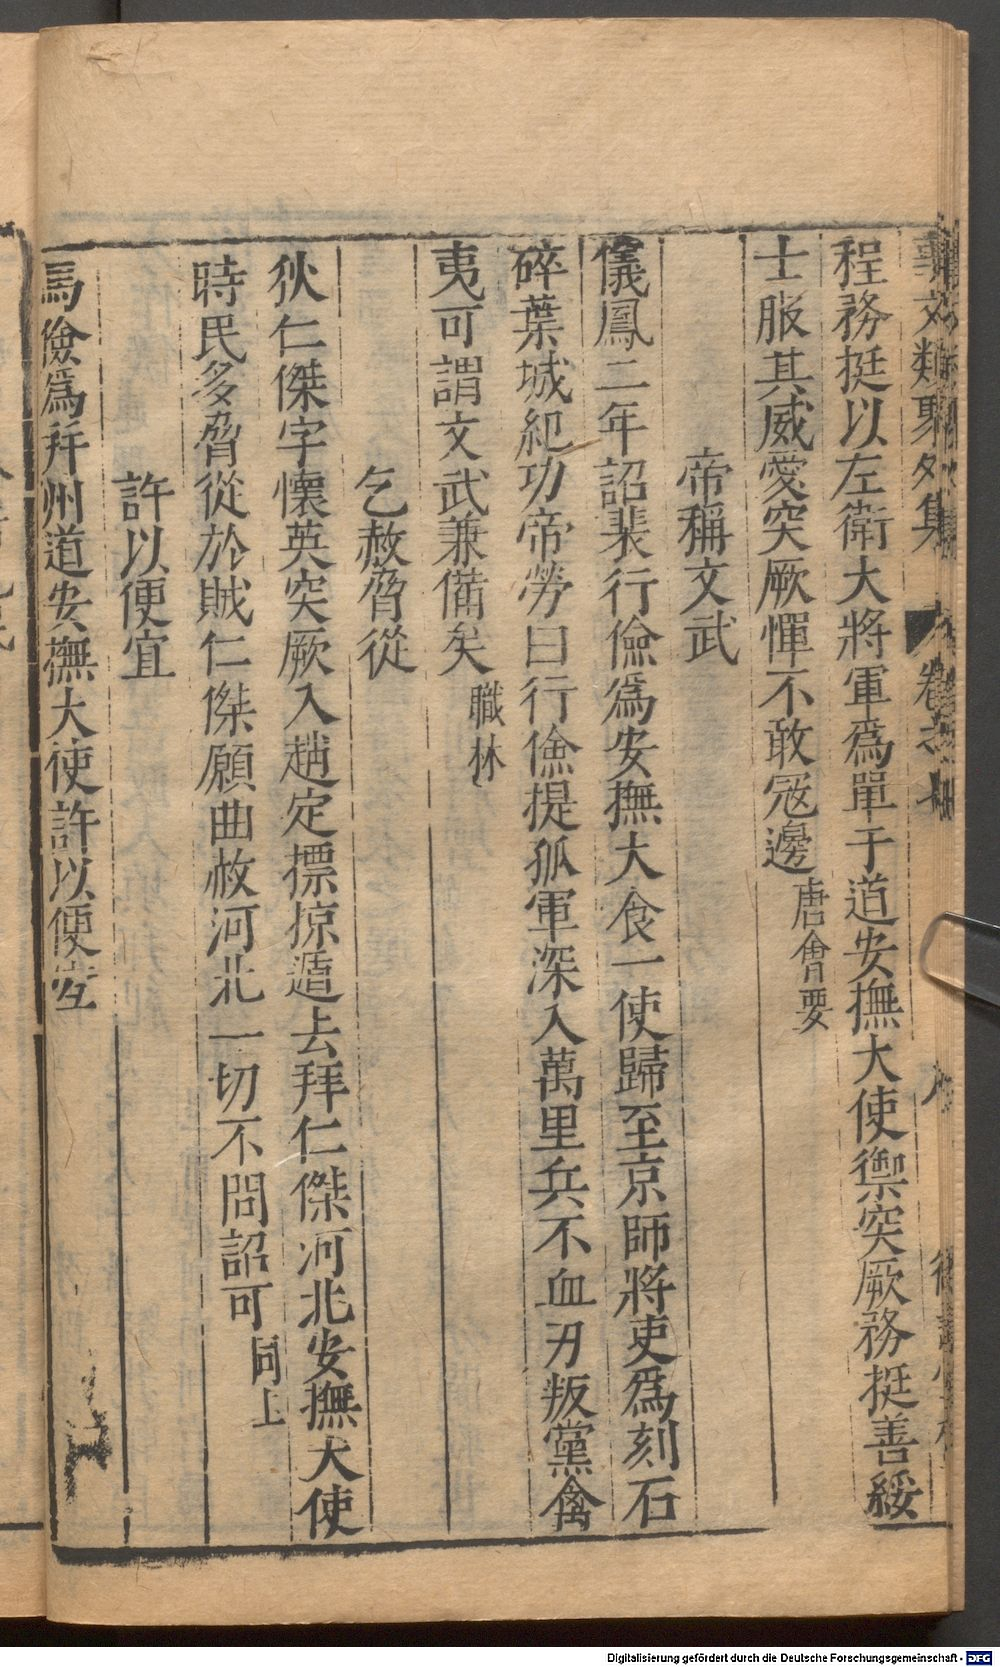 事文類聚外集 卷之
程務挺以左衛大將軍爲單于道安撫大使禦突厥務挺善綏
士服其威愛突厥憚不敢冦邊 唐會要
帝稱文武
儀鳳二年詔裴行儉爲安撫大食一使歸至京師將吏爲刻石
碎葉城紀功帝勞曰行儉提孤軍深入萬里兵不血刃叛黨禽
夷可謂文武兼備矣 職林
乞赦脅從
狄仁傑字懷英突厥入趙定摽掠遁去拜仁傑河北安撫大使
時民多脅從於賊仁傑願曲赦河北一切不問詔可 同上
許以便宜
馬儉爲并州道安撫大使許以便宜
Digitalisierung gefördert durch die Deutsche Forschungsgemeinschaft - DFG